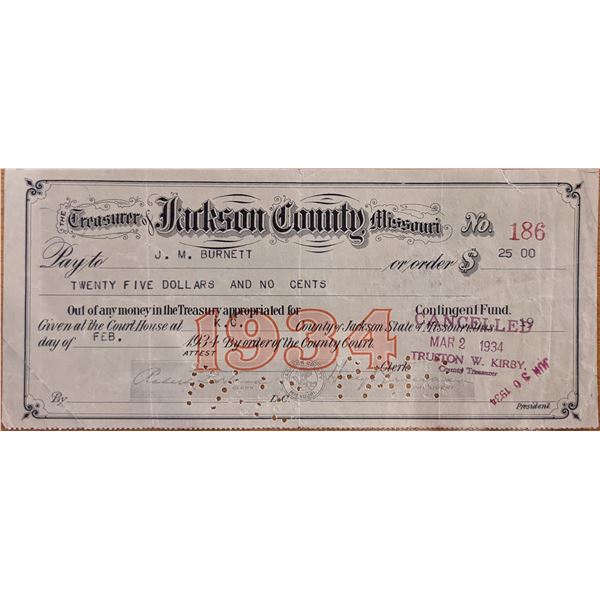 THE Treasurer of Jackson County Missouri No. 186
Pay to J. M. BURNETT or order $ 25 00
TWENTY FIVE DOLLARS AND NO CENTS
Out of any money in the Treasury appropriated for Contingent Fund.
Given at the Court House at K.C. County of Jackson, State of Missouri, this 19
day of FEB. 1934 By order of the County Court.
1934
ATTEST
Clerk
CANCELLED
MAR 2 1934
TRUSTON W. KIRBY,
County Treasurer
JUN 30 1934
By D.C. President.